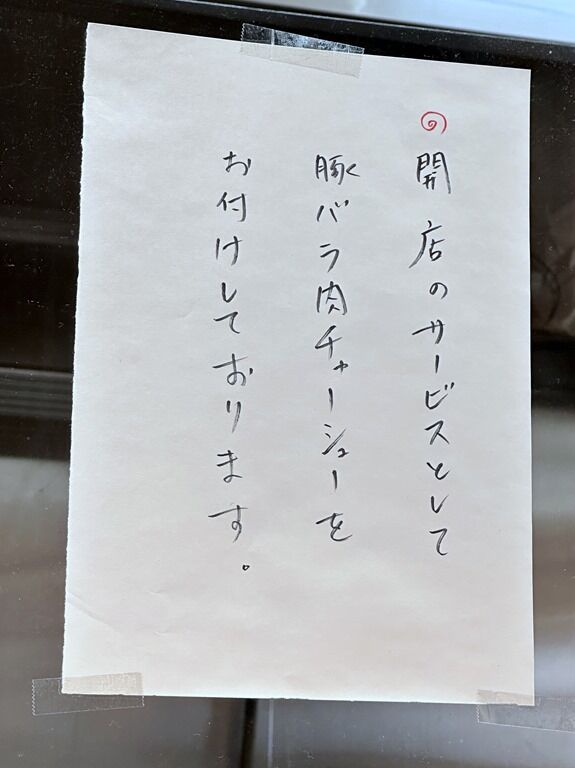 開店のサービスとして
豚バラ肉チャーシューを
お付けしております。